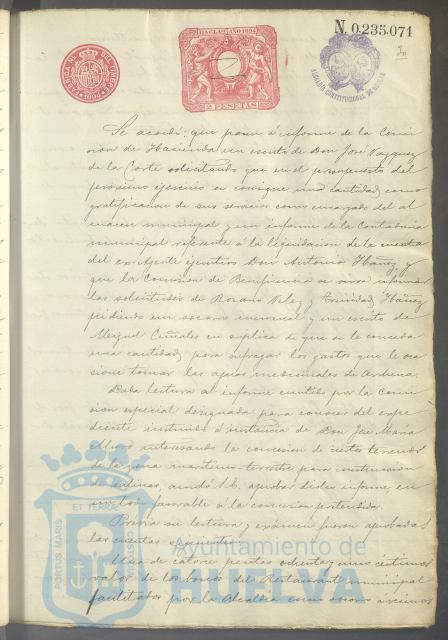 N. 0.235.071
11ª CLASE AÑO 1894
2 PESETAS
ALCALDÍA CONSTITUCIONAL DE HUELVA
Se acordó: que pasen á informe de la Comi
sion de Hacienda un escrito de Don José Vazquez
de la Corte solicitando que en el presupuesto del
próximo ejercicio se consigne una cantidad como
gratificacion de sus servicios como encargado del al
macen municipal y un informe de la Contaduria
municipal referente á la liquidacion de la cuenta
del exAgente ejecutivo Don Antonio Ibáñez y
que la Comision de Beneficencia se sirva informar
las solicitudes de Rosario Velez y Trinidad Ibáñez
pidiendo un socorro mensual y un escrito de
Miguel en suplica de que se le conceda
una cantidad para sufragar los gastos que le oca
sione tomar las aguas medicinales de
Dada lectura al informe emitido por la Comi
sion especial designada para conocer del espe
diente instruido á instancia de Don José Maria
interesando la concesion de ciertos terrenos
de la zona maritimo-terrestre para construccion
de salinas, acordó S.E. aprobar dicho informe, en
un todo favorable á la concesion pretendida.
Previa su lectura y exámen fueron aprobadas
las cuentas siguientes:
Una de catorce pesetas ochenta y un céntimos
valor de los bonos del Restaurant municipal
facilitados por la Alcaldía como socorro á vecinos
PORTUS MARIS ET TERRAE CUSTODIA
Ayuntamiento de
HUELVA